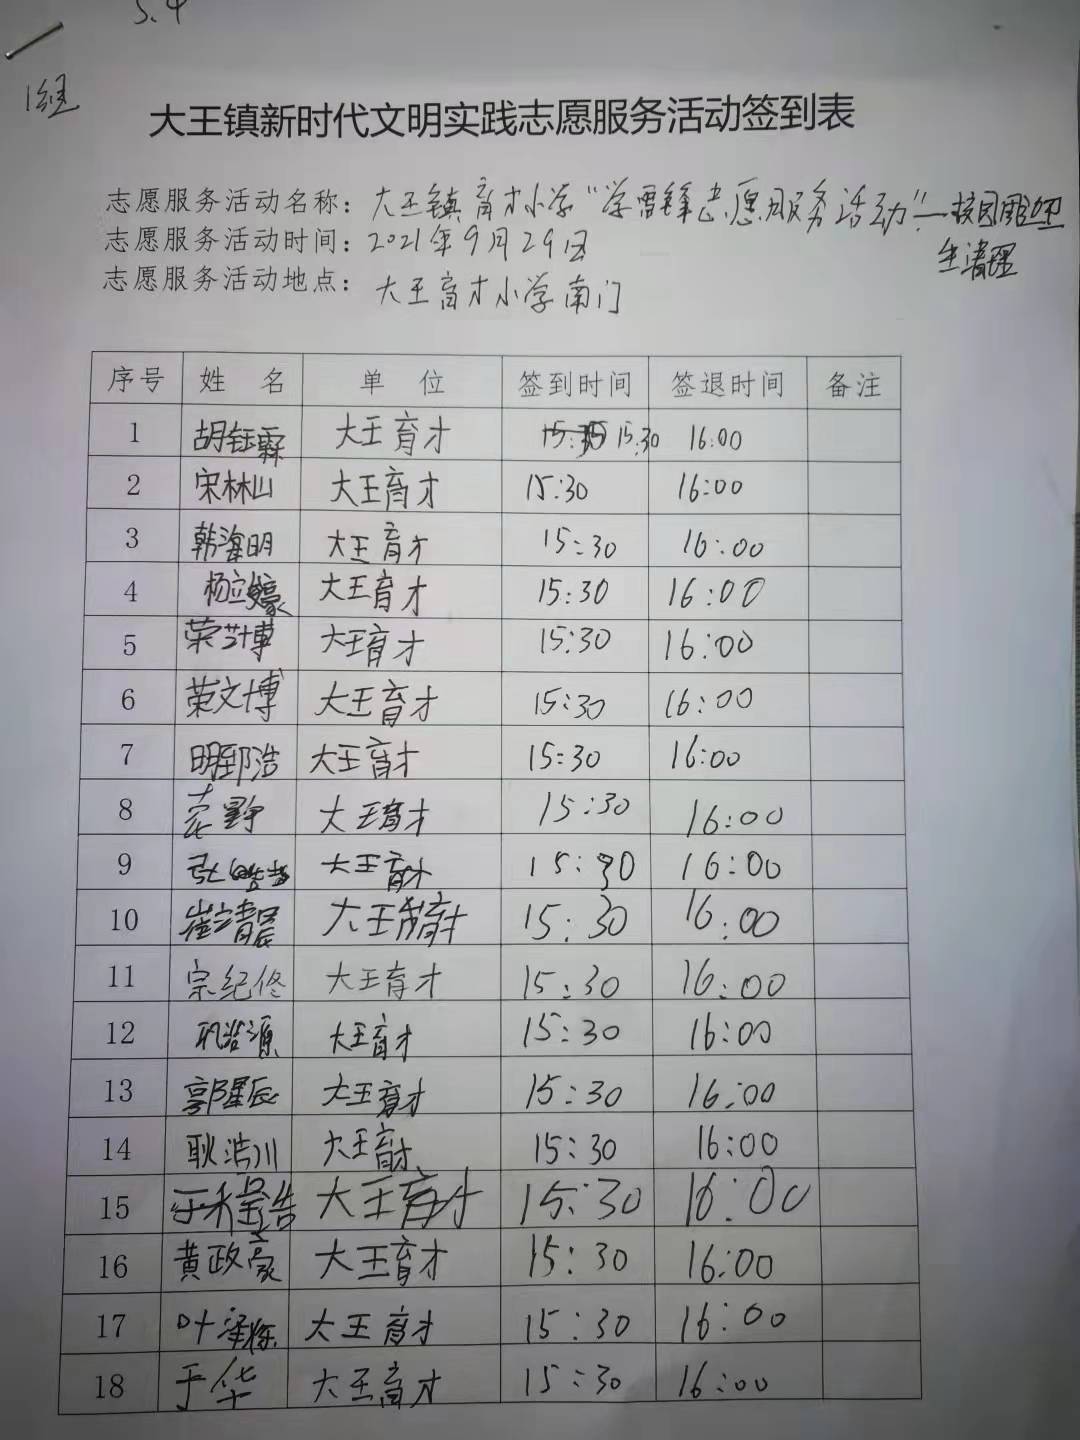 5.4
1组
大王镇新时代文明实践志愿服务活动签到表
志愿服务活动名称：大王镇育才小学“学雷锋志愿服务活动”—校园周边卫
生清理
志愿服务活动时间：2021年9月29日
志愿服务活动地点：大王育才小学南门
序号 姓 名 单 位 签到时间 签退时间 备注
1 胡钰霖 大王育才 15:30 16:00
2 宋林山 大王育才 15:30 16:00
3 韩海明 大王育才 15:30 16:00
4 杨 大王育才 15:30 16:00
5 荣 博 大王育才 15:30 16:00
6 荣文博 大王育才 15:30 16:00
7 明郅浩 大王育才 15:30 16:00
8 大王育才 15:30 16:00
9 张 大王育才 15:30 16:00
10 崔清晨 大王育才 15:30 16:00
11 宗纪佟 大王育才 15:30 16:00
12 巩浩源 大王育才 15:30 16:00
13 郭星辰 大王育才 15:30 16:00
14 耿浩川 大王育才 15:30 16:00
15 于程浩 大王育才 15:30 16:00
16 黄政豪 大王育才 15:30 16:00
17 叶泽栋 大王育才 15:30 16:00
18 于华 大王育才 15:30 16:00